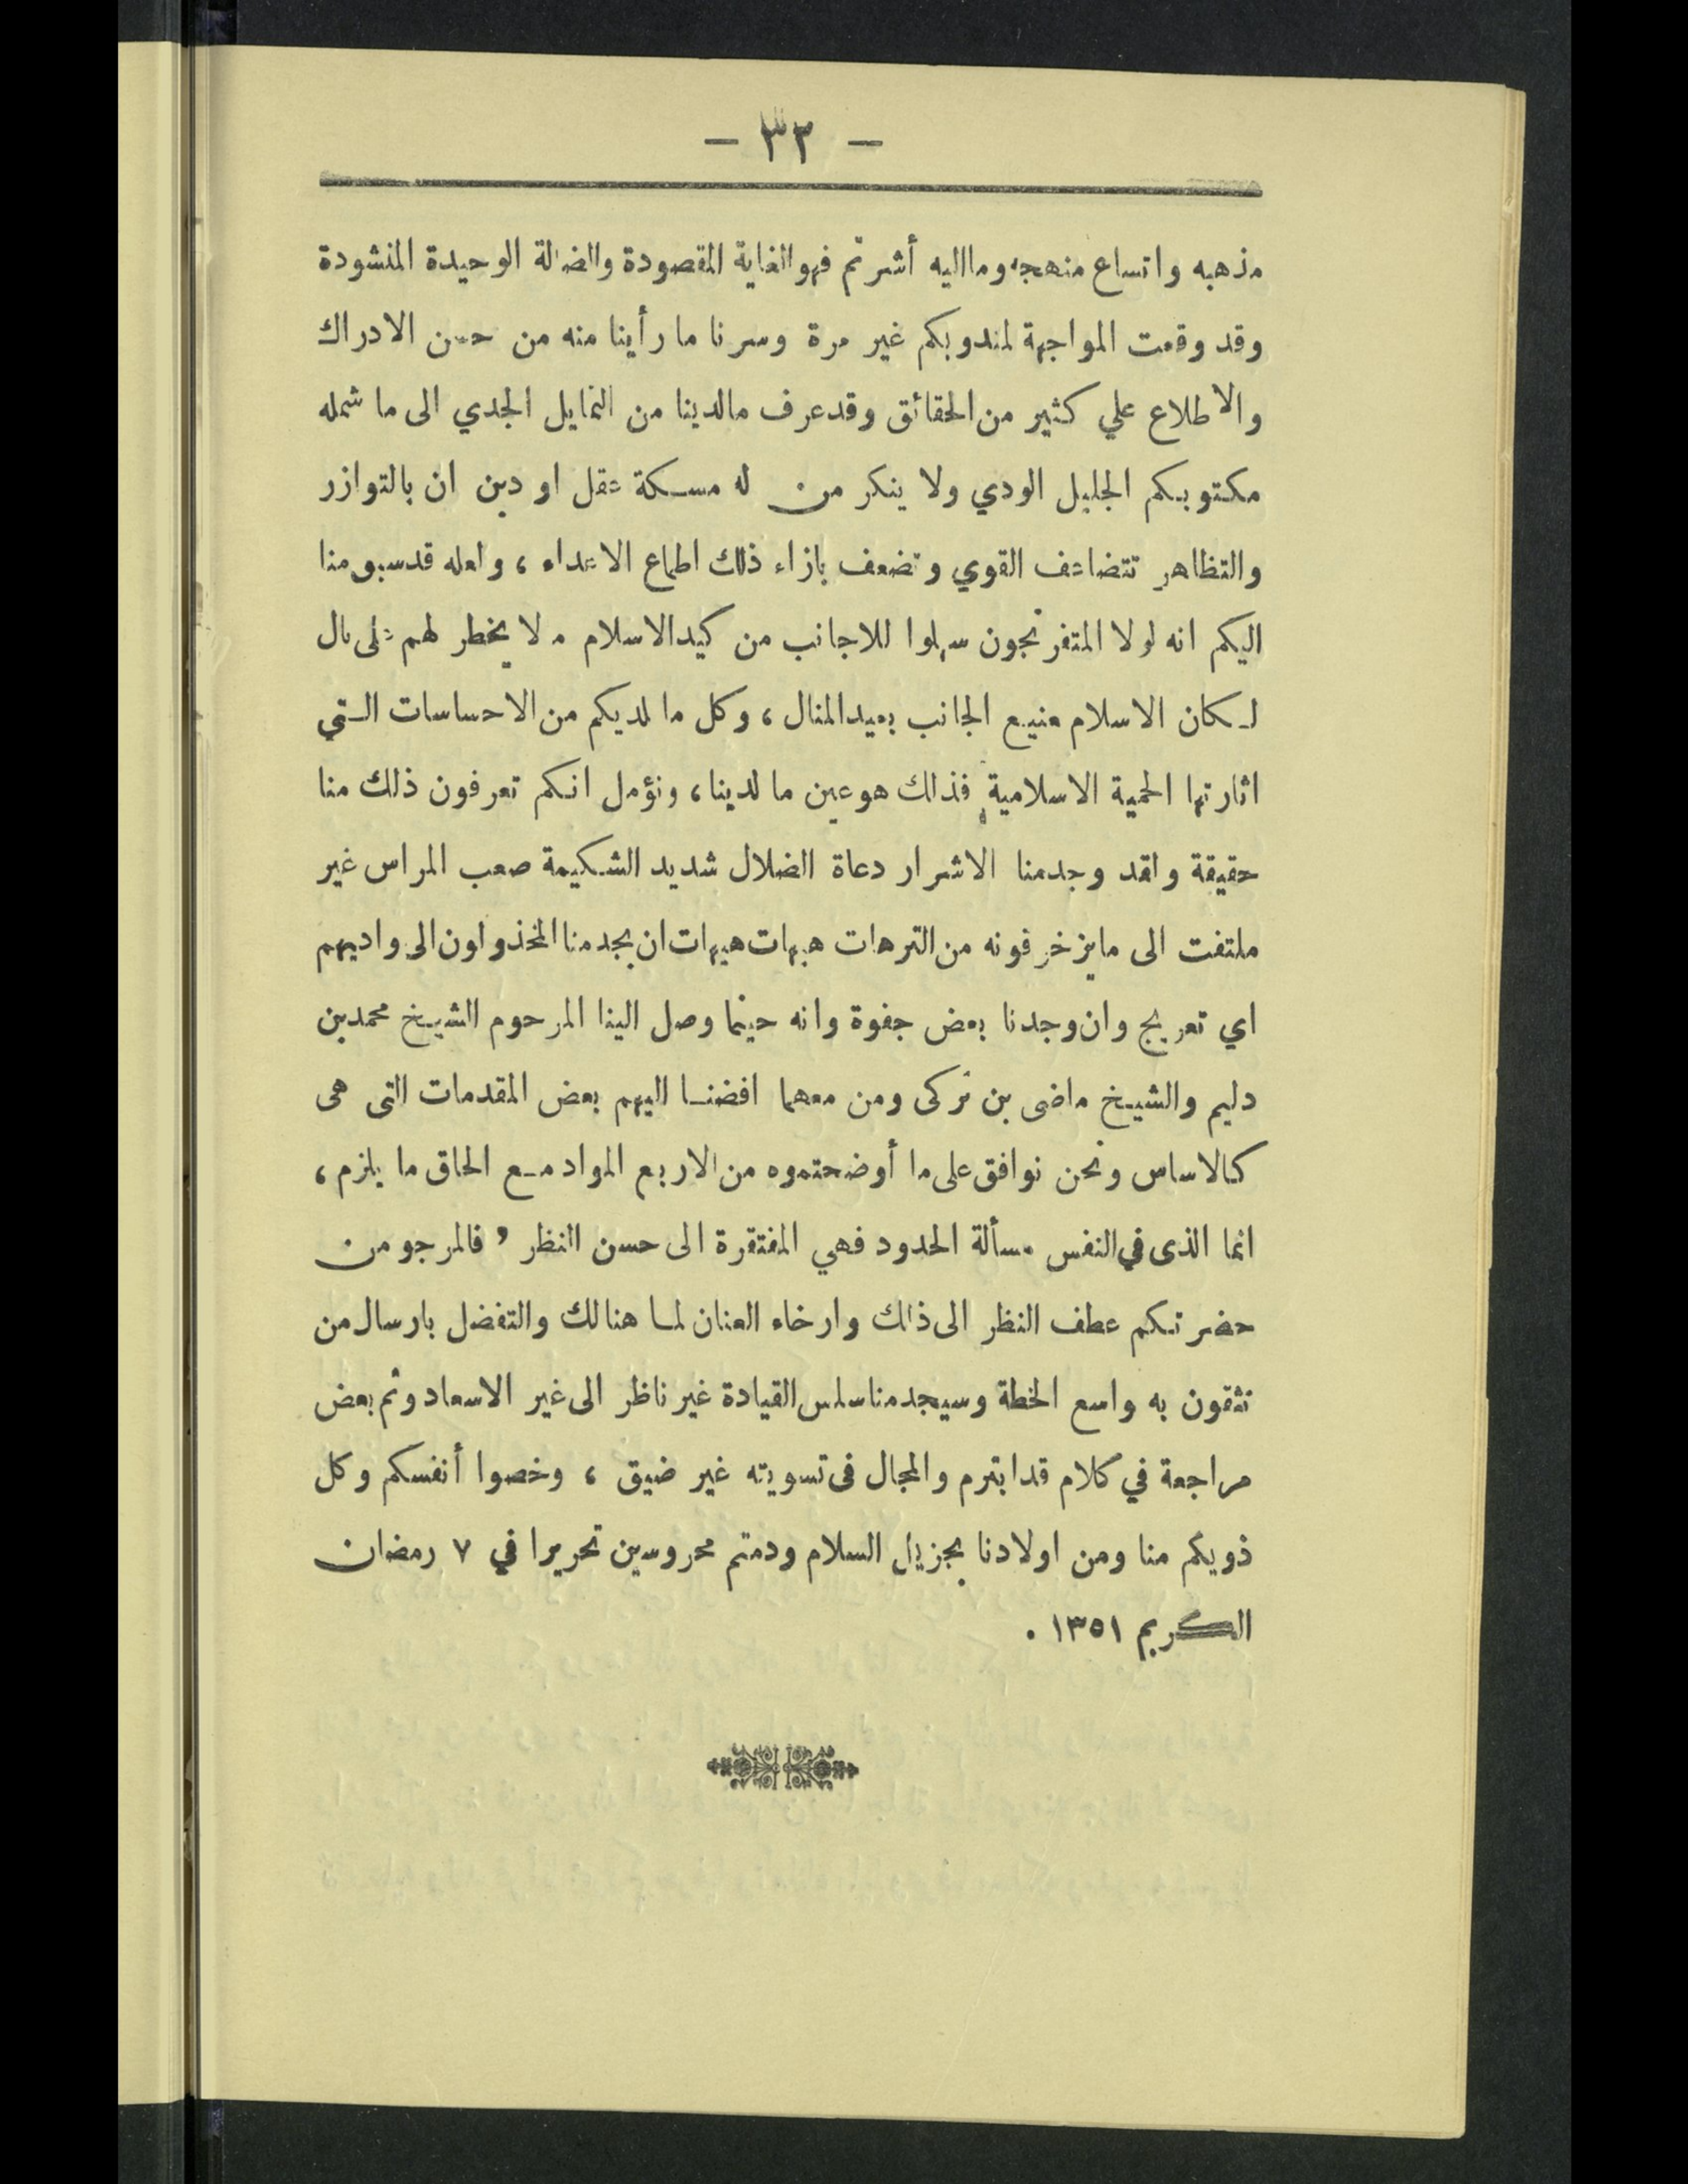 — ٣٣ —
مذهبه واتساع منهجه وما اليه أشرتم فهو الغاية المقصودة والضالة الوحيدة المنشودة
وقد وقعت المواجهة لمندوبكم غير مرة وسرنا ما رأينا منه من حسن الادراك
والاطلاع علي كثير من الحقائق وقد عرف مالدينا من التمايل الجدي الى ما شمله
مكتوبكم الجليل الودي ولا ينكر من له مسكة عقل او دين ان بالتوازر
والتظاهر تتضاعف القوي وتضعف بازاء ذلك اطماع الاعداء ، ولعله قد سبق منا
اليكم انه لولا المتفرنجون سهلوا للاجانب من كيد الاسلام ما لا يخطر لهم على بال
لكان الاسلام منيع الجانب بعيد المنال ، وكل ما لديكم من الاحساسات التي
اثارتها الحمية الاسلامية فذلك هو عين ما لدينا ، ونؤمل انكم تعرفون ذلك منا
حقيقة ولقد وجدمنا الاشرار دعاة الضلال شديد الشكيمة صعب المراس غير
ملتفت الى مايزخرفونه من الترهات هيهات هيهات ان يجد منا المخذولون الى واديهم
اي تعريج وان وجدنا بعض جفوة وانه حينما وصل الينا المرحوم الشيخ محمد بن
دليم والشيخ ماضى بن تركى ومن معهما افضنا اليهم بعض المقدمات التى هى
كالاساس ونحن نوافق على ما أوضحتموه من الاربع المواد مع الحاق ما يلزم ،
انما الذى في النفس مسألة الحدود فهي المفتقرة الى حسن النظر ، فالمرجو من
حضرتكم عطف النظر الى ذلك وارخاء العنان لما هنالك والتفضل بارسال من
تثقون به واسع الخطة وسيجد منا سلس القيادة غير ناظر الى غير الاسعاد وثم بعض
مراجعة في كلام قد ابترم والمجال فى تسويته غير ضيق ، وخصوا أنفسكم وكل
ذويكم منا ومن اولادنا بجزيل السلام ودمتم محروسين تحريرا في ٧ رمضان
الكريم ١٣٥١ .